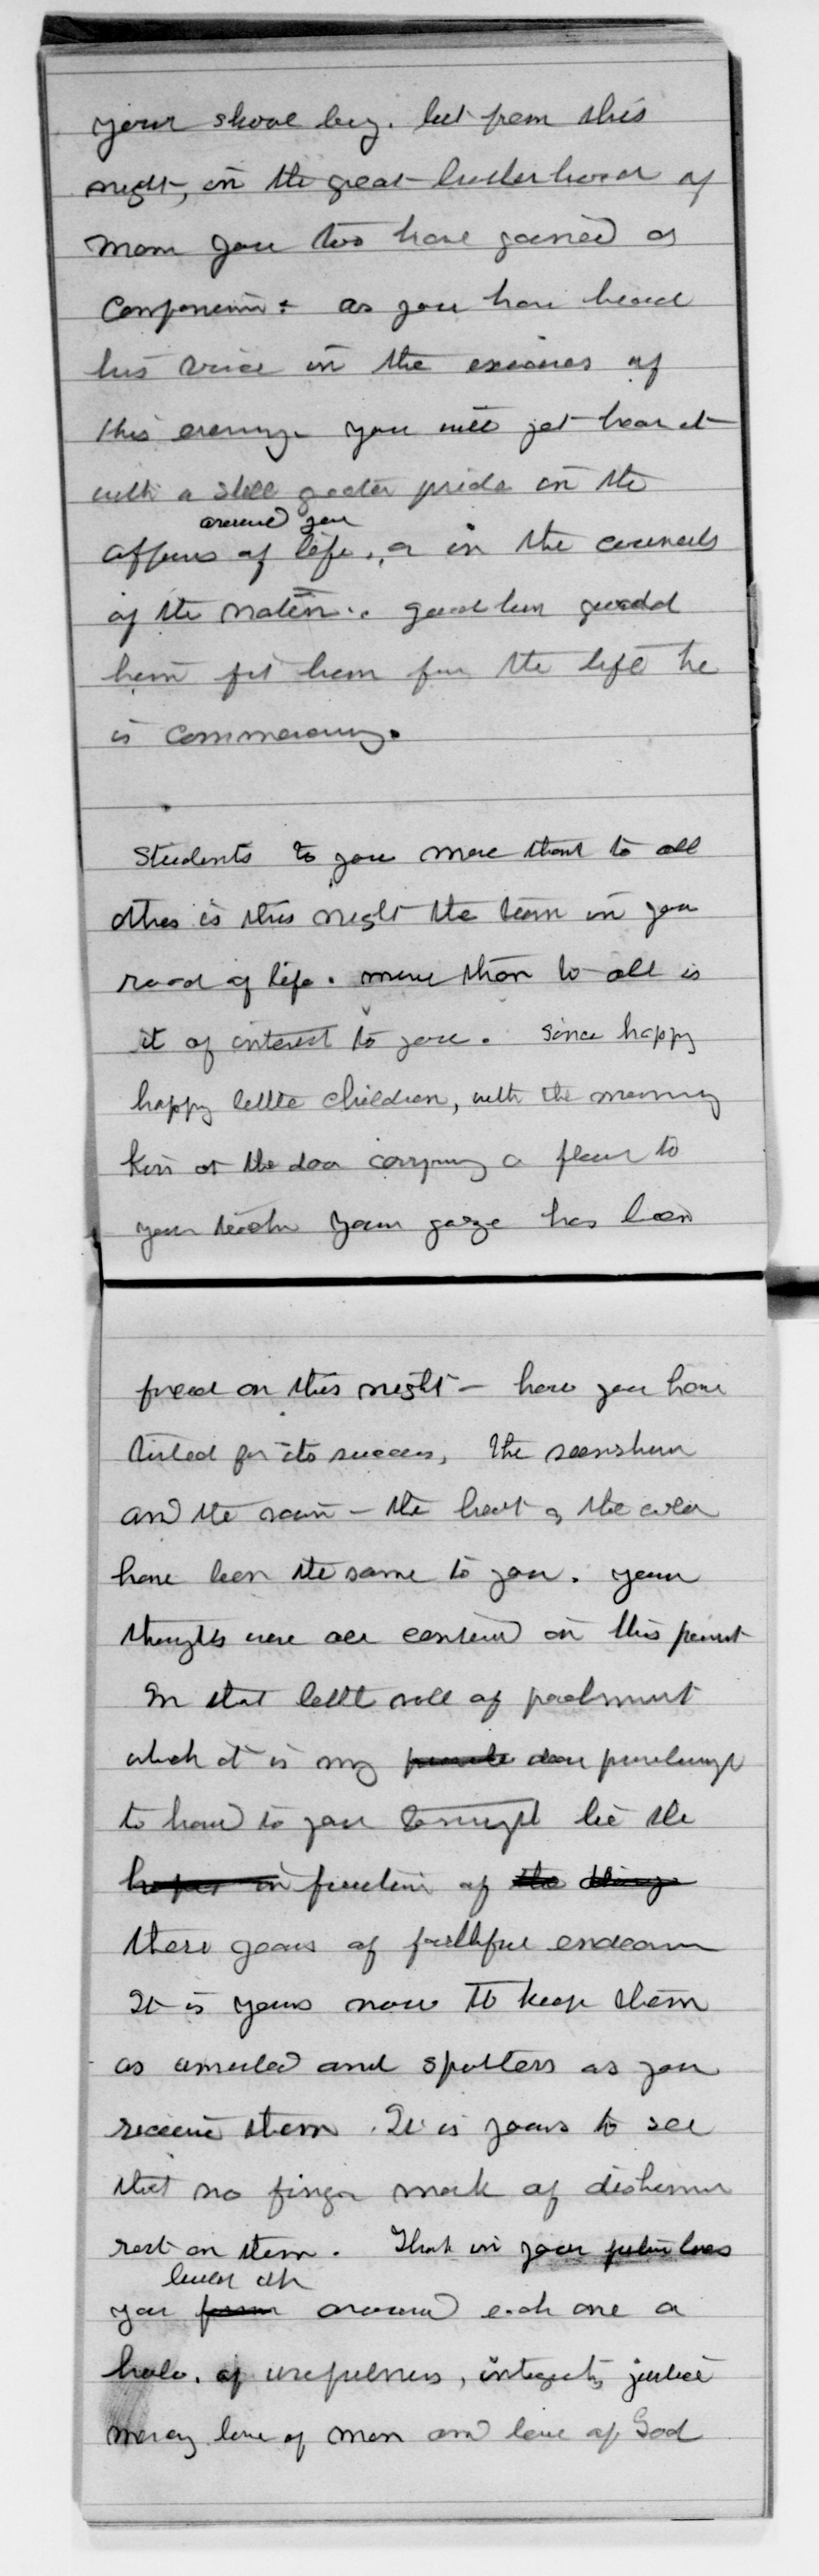 your school boy. but from this
night, in the great brotherhood of
man you two have gained a
companion. as you have heard
his voice in the exercises of
this evening you will yet hear it
with a still greater pride in the
affairs of life around you, or in the councils
of the nation. good luck
him fit him for the life he
is commencing.
Students to you more than to all
others is this night the turn in your
road of life. more than to all is
it of interest to you. Since happy
happy little children, with the morning
kiss at the door carrying a flower to
your teacher your gaze has been
fixed on this night - how you have
toiled for its success, the sunshine
and the rain - the heat & the cold
have been the same to you. your
thoughts were all centered on this point
In that little roll of parchment
which it is my dear privilege
to hand to you tonight lie the
fruition of
these years of faithful endeavor
It is yours now to keep them
as unsullied and spotless as you
receive them. It is yours to see
that no finger mark of dishonor
rest on them. That in your future lives
you build up around each one a
halo. of usefulness, integrity justice
mercy love of man and love of God